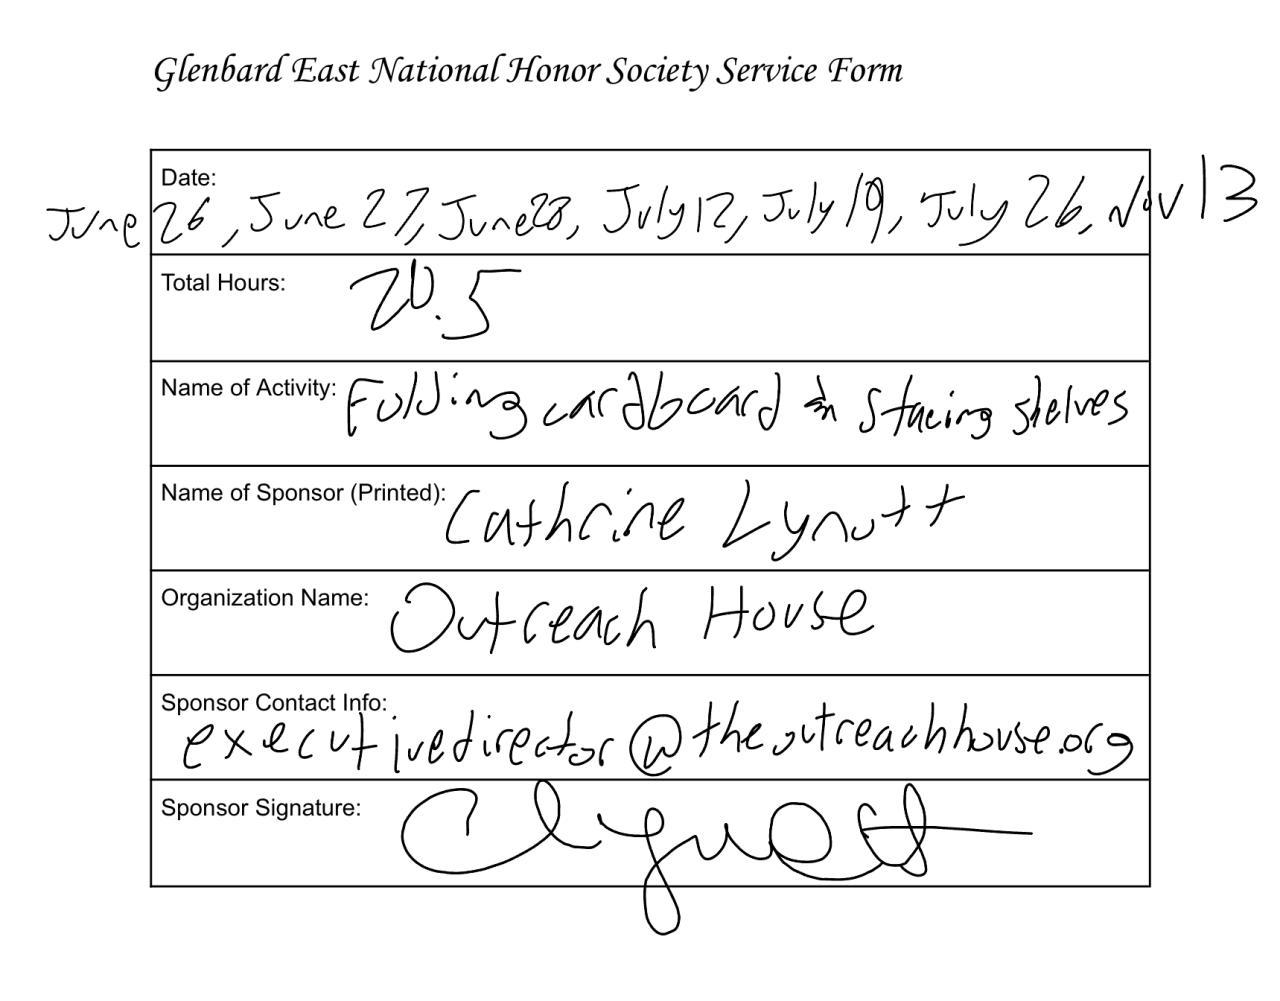 Glenbard East National Honor Society Service Form
Date:
June 26, June 27, June 28, July 12, July 19, July 26, Nov 13
Total Hours: 20.5
Name of Activity: Folding cardboard & stacing shelves
Name of Sponsor (Printed): Cathrine Lynott
Organization Name: Outreach House
Sponsor Contact Info:
executivedirector@theoutreachhouse.org
Sponsor Signature: Clynott